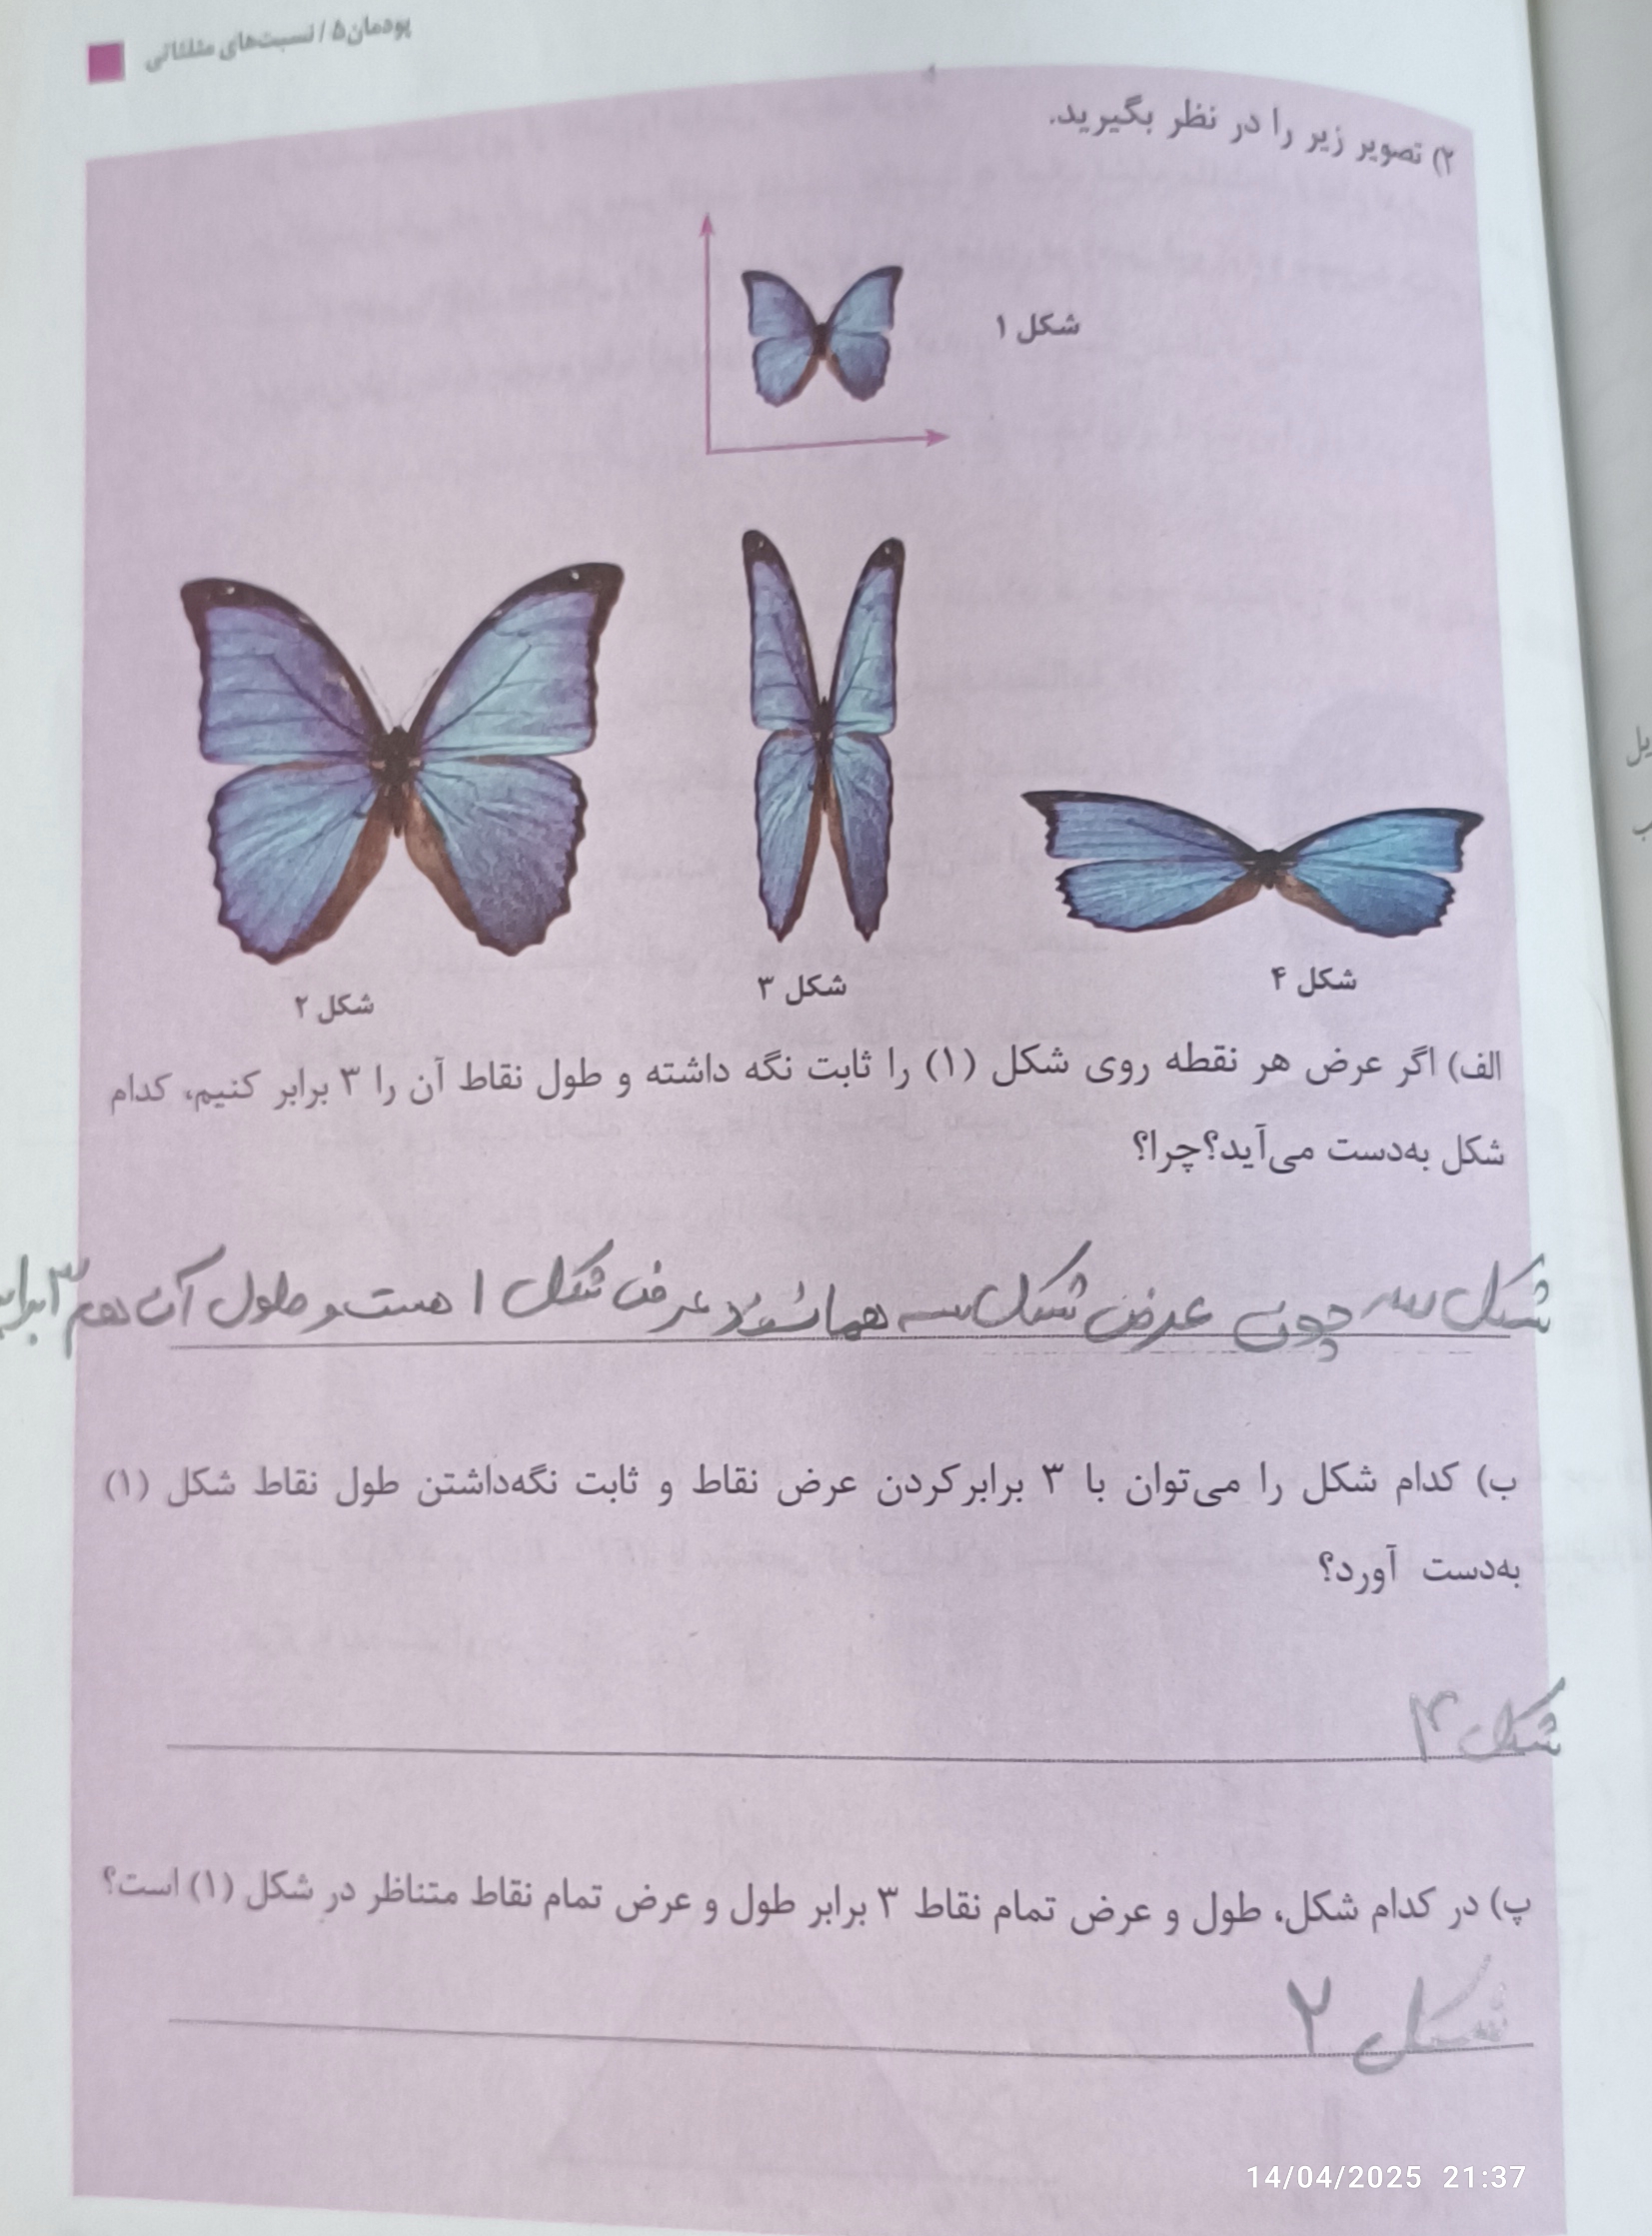 پودمان۵ / نسبت‌های مثلثاتی
۲) تصویر زیر را در نظر بگیرید.
شکل ۱
شکل ۲
شکل ۳
شکل ۴
الف) اگر عرض هر نقطه روی شکل (۱) را ثابت نگه داشته و طول نقاط آن را ۳ برابر کنیم، کدام
شکل به‌دست می‌آید؟چرا؟
شکل سه چون عرض شکل سه همانند عرض شکل ۱ هست و طول آن هم ۳ برابر
ب) کدام شکل را می‌توان با ۳ برابرکردن عرض نقاط و ثابت نگه‌داشتن طول نقاط شکل (۱)
به‌دست آورد؟
شکل ۴
پ) در کدام شکل، طول و عرض تمام نقاط ۳ برابر طول و عرض تمام نقاط متناظر در شکل (۱) است؟
شکل ۲
14/04/2025 21:37